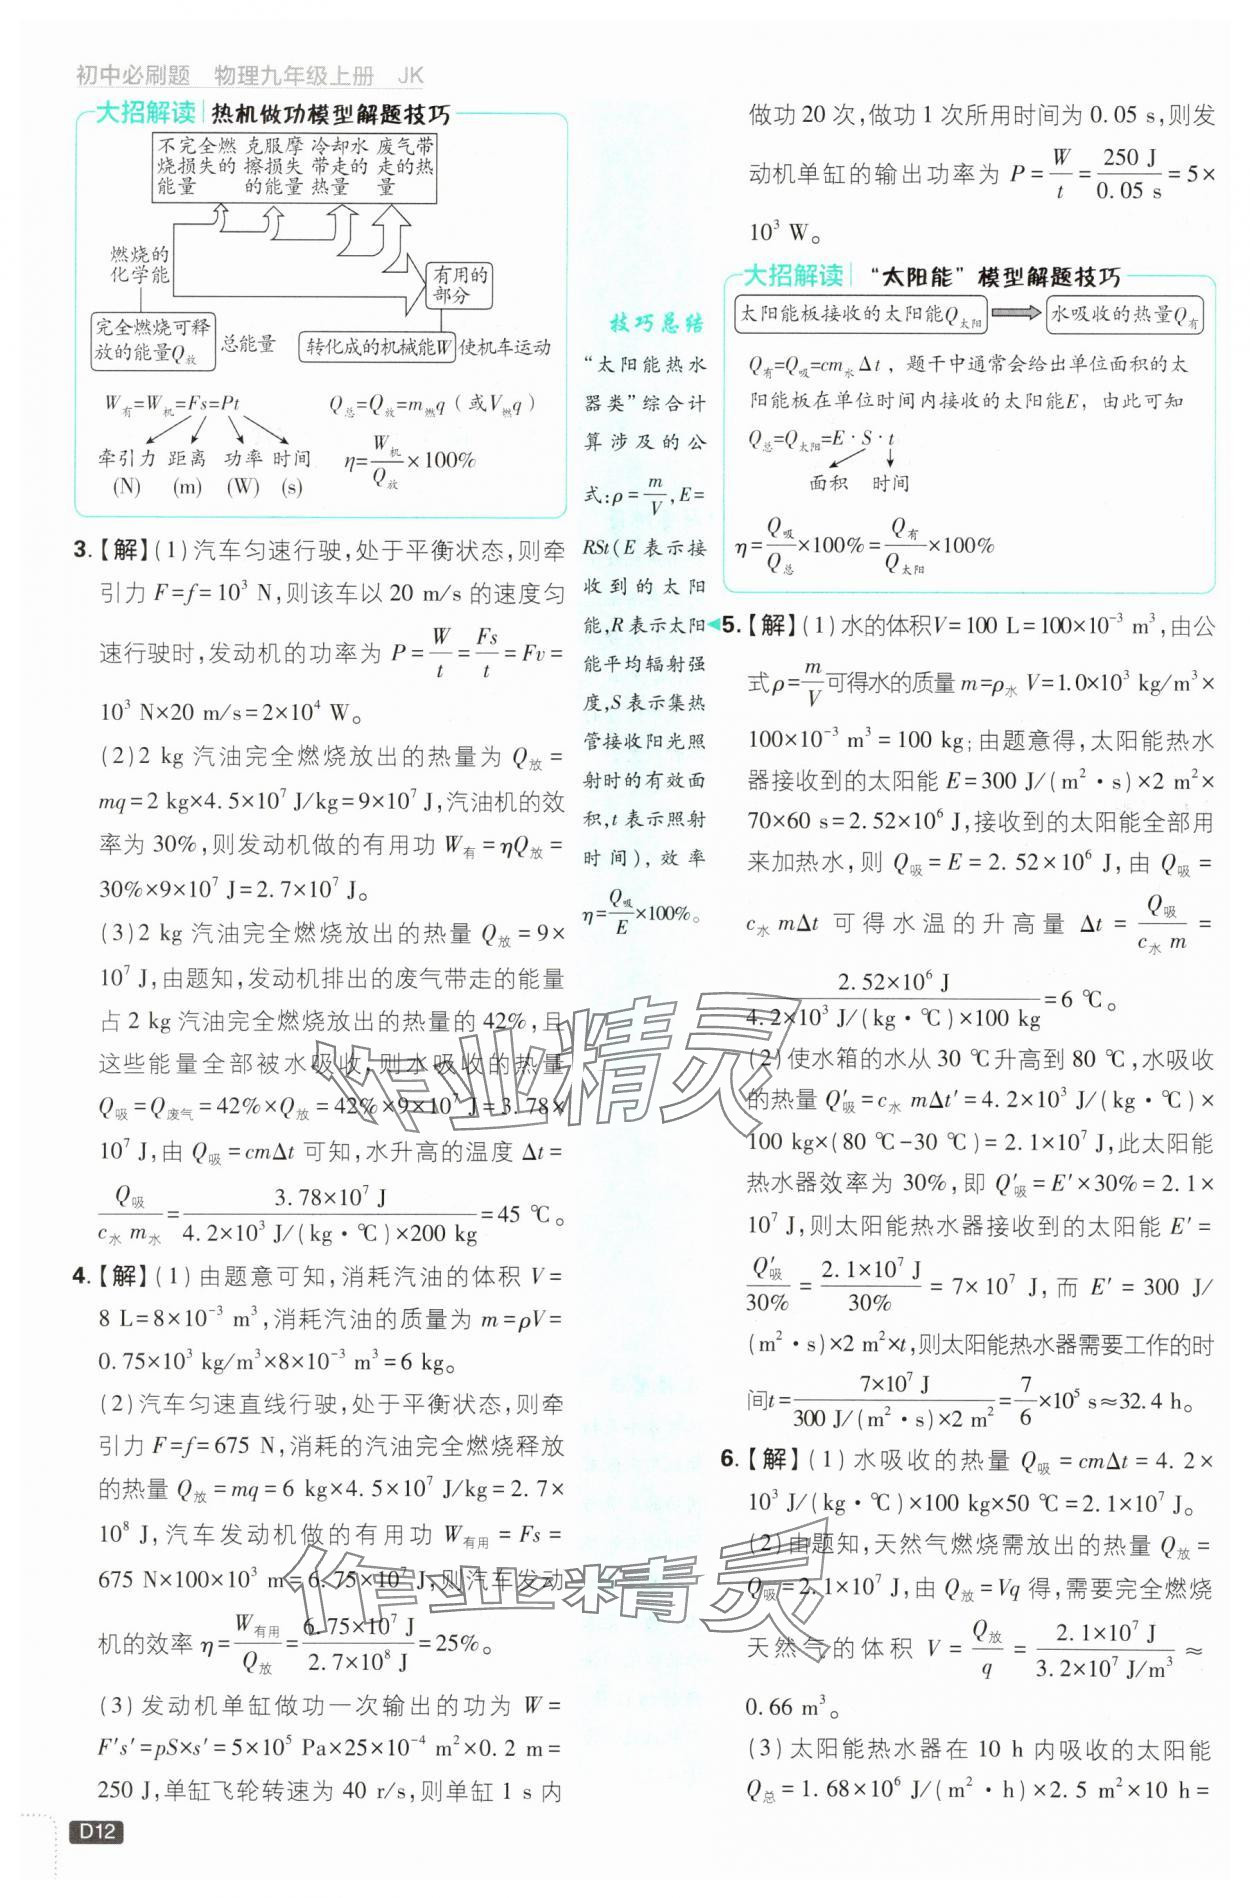 初中必刷题 物理九年级上册 JK
大招解读 热机做功模型解题技巧
不完全燃烧损失的能量 克服摩擦损失的能量 冷却水带走的热量 废气带走的热量
燃烧的化学能
有用的部分
完全燃烧可释放的能量Q放 总能量
转化成的机械能W 使机车运动
W有=W机=Fs=Pt
Q总=Q放=m燃q（或V燃q）
牵引力 距离 功率 时间
(N) (m) (W) (s)
η=W机/Q放×100%
3.【解】(1)汽车匀速行驶,处于平衡状态,则牵
引力 F=f=10³ N,则该车以 20 m/s 的速度匀
速行驶时,发动机的功率为 P=W/t=Fs/t=Fv=
10³ N×20 m/s=2×10⁴ W。
(2)2 kg 汽油完全燃烧放出的热量为 Q放=
mq=2 kg×4.5×10⁷ J/kg=9×10⁷ J,汽油机的效
率为 30%,则发动机做的有用功 W有=ηQ放=
30%×9×10⁷ J=2.7×10⁷ J。
(3)2 kg 汽油完全燃烧放出的热量 Q放=9×
10⁷ J,由题知,发动机排出的废气带走的能量
占 2 kg 汽油完全燃烧放出的热量的 42%,且
这些能量全部被水吸收,则水吸收的热量
Q吸=Q废气=42%×Q放=42%×9×10⁷ J=3.78×
10⁷ J,由 Q吸=cmΔt 可知,水升高的温度 Δt=
Q吸/(c水 m水)=3.78×10⁷ J/(4.2×10³ J/(kg·℃)×200 kg)=45 ℃。
4.【解】(1)由题意可知,消耗汽油的体积 V=
8 L=8×10⁻³ m³,消耗汽油的质量为 m=ρV=
0.75×10³ kg/m³×8×10⁻³ m³=6 kg。
(2)汽车匀速直线行驶,处于平衡状态,则牵
引力 F=f=675 N,消耗的汽油完全燃烧释放
的热量 Q放=mq=6 kg×4.5×10⁷ J/kg=2.7×
10⁸ J,汽车发动机做的有用功 W有用=Fs=
675 N×100×10³ m=6.75×10⁷ J,则汽车发动
机的效率 η=W有用/Q放=6.75×10⁷ J/2.7×10⁸ J=25%。
(3)发动机单缸做功一次输出的功为 W=
F′s′=pS×s′=5×10⁵ Pa×25×10⁻⁴ m²×0.2 m=
250 J,单缸飞轮转速为 40 r/s,则单缸 1 s 内
D12
技巧总结
“太阳能热水
器类”综合计
算涉及的公
式:ρ=m/V,E=
RSt(E 表示接
收到的太阳
能,R表示太阳
能平均辐射强
度,S 表示集热
管接收阳光照
射时的有效面
积,t 表示照射
时间),效率
η=Q吸/E×100%。
做功 20 次,做功 1 次所用时间为 0.05 s,则发
动机单缸的输出功率为 P=W/t=250 J/0.05 s=5×
10³ W。
大招解读 “太阳能”模型解题技巧
太阳能板接收的太阳能Q太阳 水吸收的热量Q有
Q有=Q吸=cm水Δt，题干中通常会给出单位面积的太
阳能板在单位时间内接收的太阳能E，由此可知
Q总=Q太阳=E·S·t
面积 时间
η=Q吸/Q总×100%=Q有/Q太阳×100%
5.【解】(1)水的体积V=100 L=100×10⁻³ m³,由公
式ρ=m/V可得水的质量 m=ρ水 V=1.0×10³ kg/m³×
100×10⁻³ m³=100 kg;由题意得,太阳能热水
器接收到的太阳能 E=300 J/(m²·s)×2 m²×
70×60 s=2.52×10⁶ J,接收到的太阳能全部用
来加热水,则 Q吸=E=2.52×10⁶ J,由 Q吸=
c水 mΔt 可得水温的升高量 Δt=Q吸/(c水 m)=
2.52×10⁶ J/(4.2×10³ J/(kg·℃)×100 kg)=6 ℃。
(2)使水箱的水从 30 ℃升高到 80 ℃,水吸收
的热量 Q′吸=c水 mΔt′=4.2×10³ J/(kg·℃)×
100 kg×(80 ℃-30 ℃)=2.1×10⁷ J,此太阳能
热水器效率为 30%,即 Q′吸=E′×30%=2.1×
10⁷ J,则太阳能热水器接收到的太阳能 E′=
Q′吸/30%=2.1×10⁷ J/30%=7×10⁷ J,而 E′=300 J/
(m²·s)×2 m²×t,则太阳能热水器需要工作的时
间t=7×10⁷ J/(300 J/(m²·s)×2 m²)=7/6×10⁵ s≈32.4 h。
6.【解】(1)水吸收的热量 Q吸=cmΔt=4.2×
10³ J/(kg·℃)×100 kg×50 ℃=2.1×10⁷ J。
(2)由题知,天然气燃烧需放出的热量 Q放=
Q吸=2.1×10⁷ J,由 Q放=Vq 得,需要完全燃烧
天然气的体积 V=Q放/q=2.1×10⁷ J/3.2×10⁷ J/m³≈
0.66 m³。
(3)太阳能热水器在 10 h 内吸收的太阳能
Q总=1.68×10⁶ J/(m²·h)×2.5 m²×10 h=
作业精灵
作业精灵